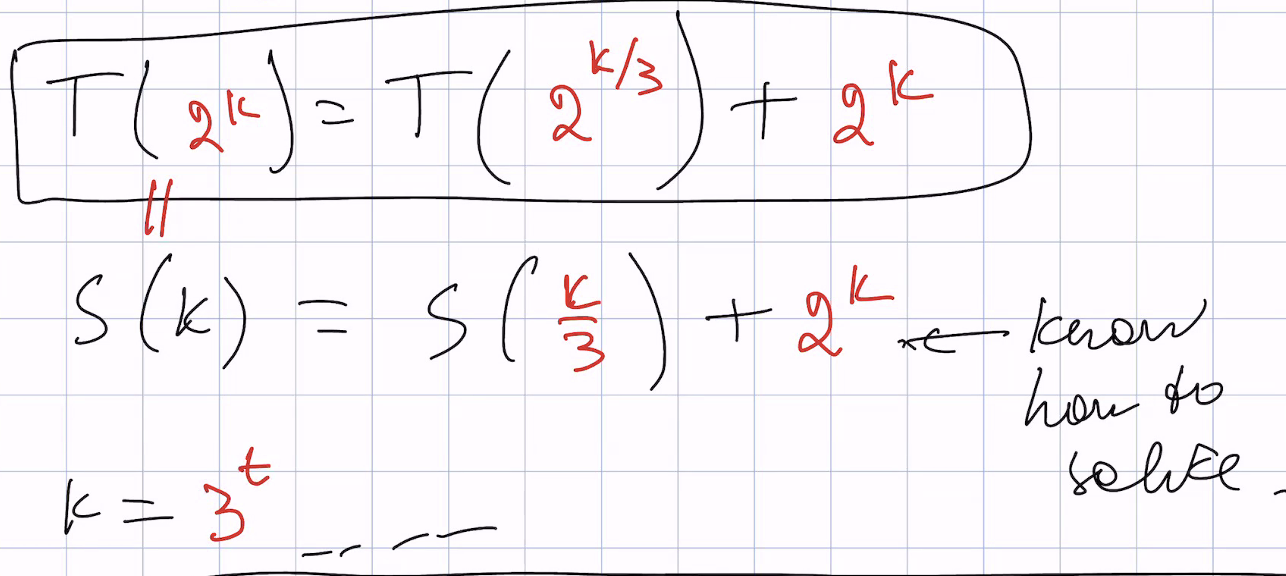 T(2^k) = T(2^{k/3}) + 2^k
||
S(k) = S(k/3) + 2^k ← know
how to
solve.
k = 3^t